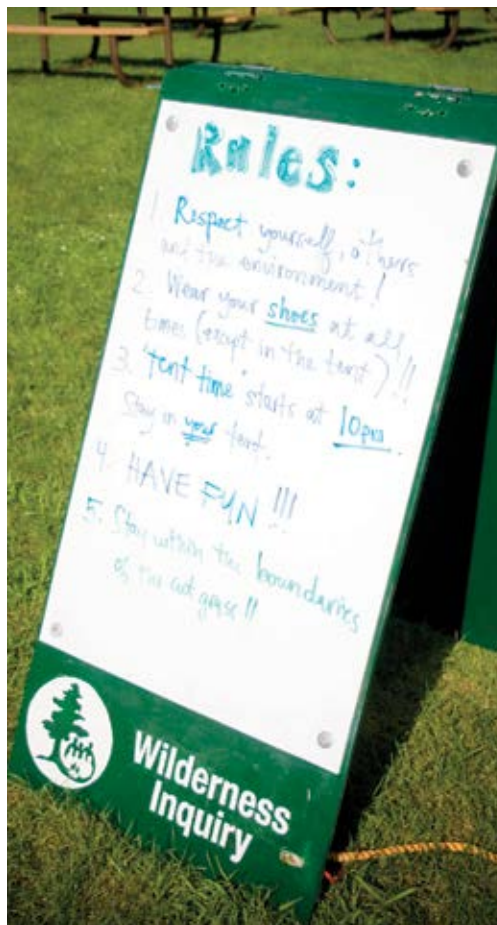 Rules:
1 Respect yourself, others
and the environment!
2. Wear your shoes at all
times (except in the tent)!!
3. "tent time" starts at 10pm.
Stay in your tent.
4. HAVE FUN!!!
5. Stay within the boundaries
of the cut grass!!
Wilderness
Inquiry